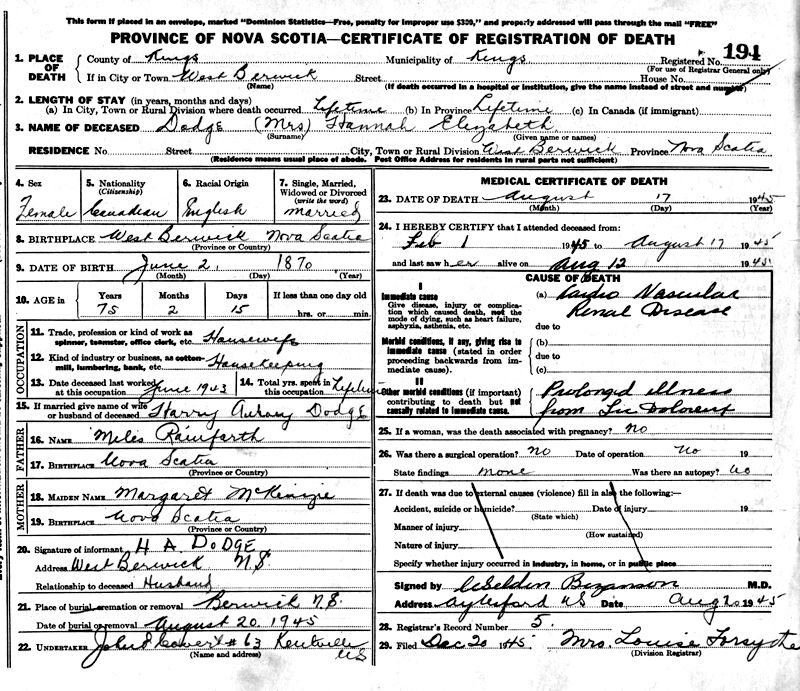 This form if placed in an envelope, marked "Dominion Statistics—Free, penalty for improper use $300," and properly addressed will pass through the mail "FREE"
PROVINCE OF NOVA SCOTIA—CERTIFICATE OF REGISTRATION OF DEATH
1. PLACE OF DEATH
County of Kings Municipality of Kings Registered No. 194
(For use of Registrar General only)
If in City or Town West Berwick Street House No.
(Name) (If death occurred in a hospital or institution, give the name instead of street and number)
2. LENGTH OF STAY (in years, months and days)
(a) In City, Town or Rural Division where death occurred Lifetime (b) In Province Lifetime (c) In Canada (if immigrant)
3. NAME OF DECEASED Dodge (Mrs) Hannah Elizabeth
(Surname) (Given name or names)
RESIDENCE No. Street City, Town or Rural Division West Berwick Province Nova Scotia
(Residence means usual place of abode. Post Office Address for residents in rural parts not sufficient)
4. Sex
Female
5. Nationality
(Citizenship)
Canadian
6. Racial Origin
English
7. Single, Married, Widowed or Divorced
(write the word)
married
8. BIRTHPLACE West Berwick Nova Scotia
(Province or Country)
9. DATE OF BIRTH June 2, 1870
(Month) (Day) (Year)
10. AGE in
Years Months Days If less than one day old
75 2 15 hrs. or min.
OCCUPATION
11. Trade, profession or kind of work as spinner, teamster, office clerk, etc. Housewife
12. Kind of industry or business, as cotton-mill, lumbering, bank, etc. Housekeeping
13. Date deceased last worked at this occupation June 1943
14. Total yrs. spent in this occupation Lifetime
15. If married give name of wife or husband of deceased Harry Dodge
FATHER
16. NAME Miles Rainforth
17. BIRTHPLACE Nova Scotia
(Province or Country)
MOTHER
18. MAIDEN NAME Margaret McKinzie
19. BIRTHPLACE Nova Scotia
(Province or Country)
20. Signature of informant H A DODGE
Address West Berwick N.S.
Relationship to deceased Husband
21. Place of burial, cremation or removal Berwick N.S.
Date of burial or removal August 20, 1945
22. UNDERTAKER #63 Kentville NS
(Name and address)
MEDICAL CERTIFICATE OF DEATH
23. DATE OF DEATH August 17 1945
(Month) (Day) (Year)
24. I HEREBY CERTIFY that I attended deceased from:
Feb 1 1945 to August 17 1945
and last saw her alive on Aug 12 1945
CAUSE OF DEATH
I
Immediate cause
Give disease, injury or complication which caused death, not the mode of dying, such as heart failure, asphyxia, asthenia, etc.
(a) Cardio Vascular Renal Disease
due to
Morbid conditions, if any, giving rise to immediate cause (stated in order proceeding backwards from immediate cause)
(b)
due to
(c)
II
Other morbid conditions (if important) contributing to death but not causally related to immediate cause.
Prolonged illness
from
25. If a woman, was the death associated with pregnancy? no
26. Was there a surgical operation? no Date of operation no 19
State findings none Was there an autopsy? no
27. If death was due to external causes (violence) fill in also the following:—
Accident, suicide or homicide? Date of injury 19
(State which)
Manner of injury
(How sustained)
Nature of injury
Specify whether injury occurred in industry, in home, or in public place
Signed by Bezanson M.D.
Address Aylesford NS Date Aug 20 1945
28. Registrar's Record Number 5.
29. Filed Dec 20 1945 Mrs. Louise Forsythe
(Division Registrar)